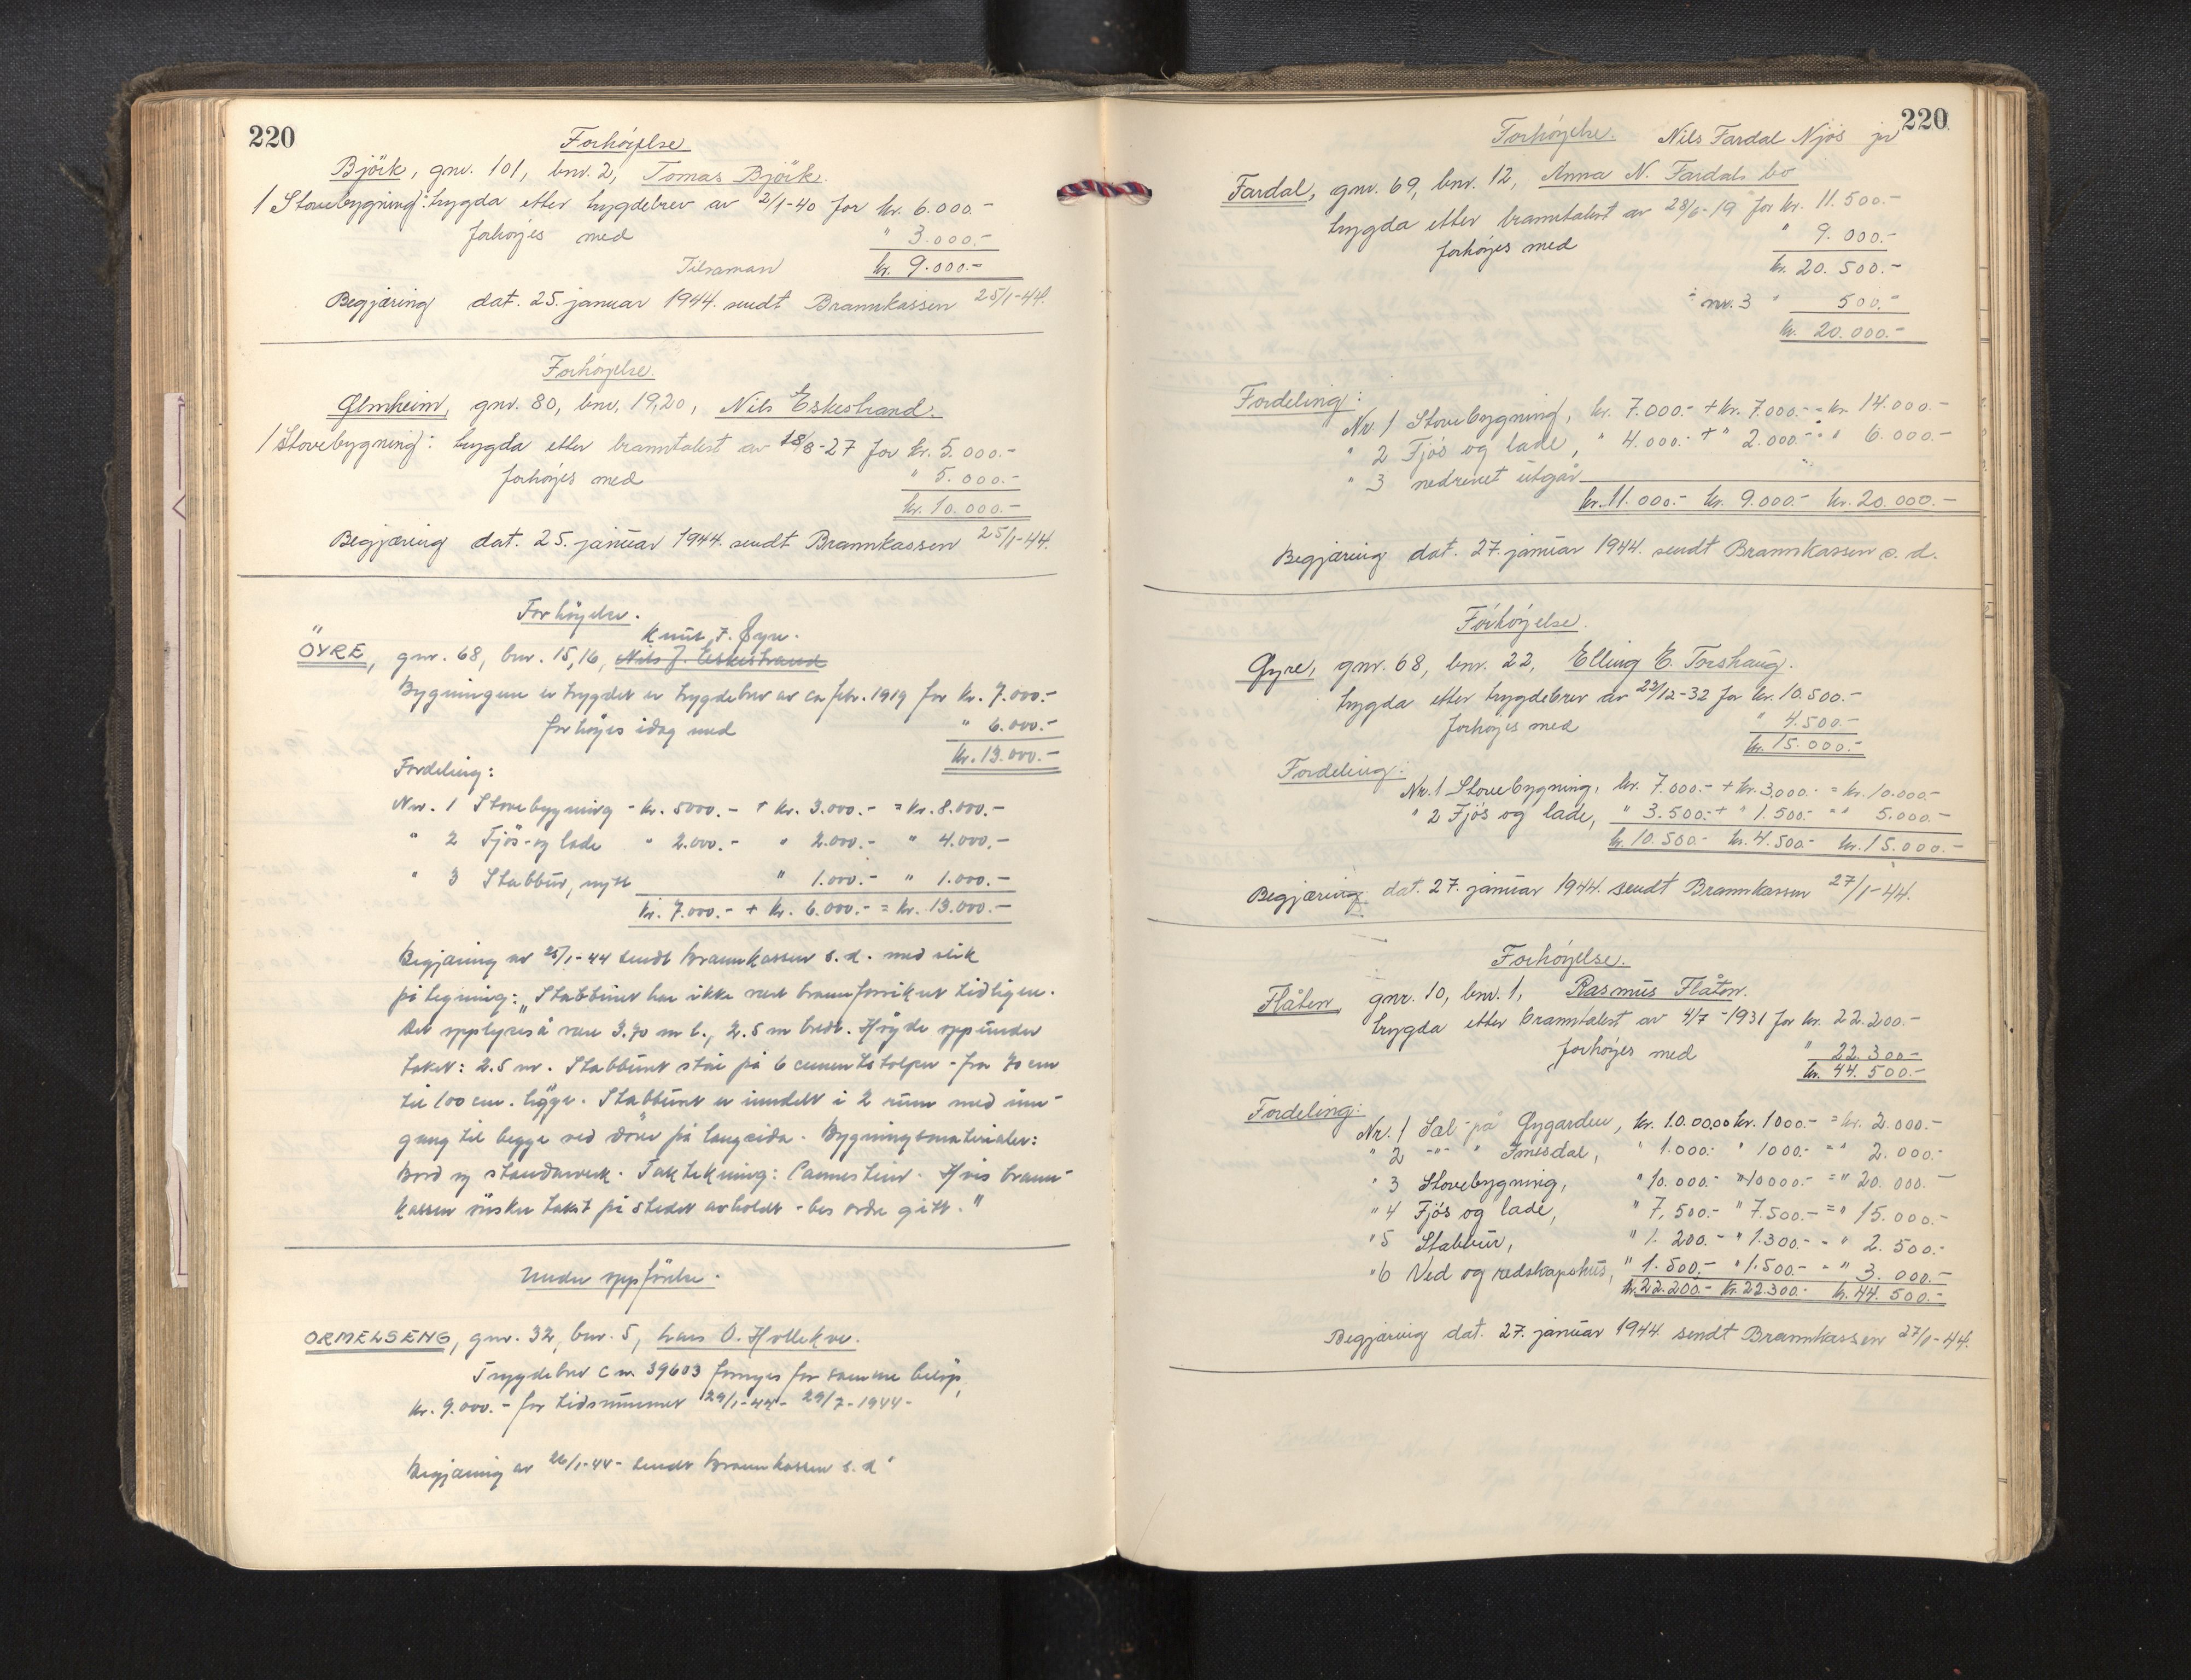 220
Forhøyelse
Björk, gnr. 101, bnr. 2, Tomas Björk.
1 Stovebygning: trygda etter trygdebrev av 2/1-40 for kr. 6.000.-
forhøyes med " 3.000.-
Tilsaman kr. 9.000.-
Begjæring dat. 25. januar 1944. sendt Brannkassen 25/1-44.
Forhøyelse.
Ølmheim, gnr. 80, bnr. 19,20, Nils Eskestrand.
1 Stovebygning: trygda etter branntakst av 18/8-27 for kr. 5.000.-
forhøyes med " 5.000.-
kr. 10.000.-
Begjæring dat. 25. januar 1944. sendt Brannkassen 25/1-44.
Forhöyelse.
Knut J. Øyre.
ÖYRE, gnr. 68, bnr. 15,16, Nils J. Eskestrand
Bygningene er trygdet er trygdebrev av ca febr. 1919 for kr. 7.000.-
forhöyes idag med " 6.000.-
kr. 13.000.-
Fordeling:
Nr. 1 Stovebygning - kr. 5000.- + kr. 3.000.- = kr. 8.000.-
" 2 Fjös- og lade " 2.000.- " 2.000.- " 4.000.-
" 3 Stabbür, nytt " 1.000.- " 1.000.-
kr. 7.000.- + kr. 6.000.- = kr. 13.000.-
Begjæring av 25/1-44 sendt Brannkassen s.d. med slik
påtegning: "Stabbüret har ikke vært brannforsikret tidligere.
Det opplyses å være 3.70 m l., 2.5 m bredt. Höyde opp ünder
taket: 2.5 m. Stabbüret står på 6 cementstolper - fra 70 cm
til 100 cm. höye. Stabbüret er inndelt i 2 rum med inn-
gang til begge ved dörer på langsida. Bygningsmaterialer:
Bord og standarverk. Taktekning: Cannestein. Hvis brann-
kassen önsker takst på stedet avholdt - bes ordre gitt."
Under oppförelse.
ORMELSENG, gnr. 32, bnr. 5, Lars O. Hollekve.
Trygdebrev C nr. 39603 fornyes for samme belöp,
kr. 9.000.- for tidsrummet 29/1-44 - 29/7-1944-
Begjæring av 26/1-44- sendt Brannkassen s.d.
220
Forhøyelse. Nils Fardal Njøs jr
Fardal, gnr. 69, bnr. 12, Anna N. Fardals bo
trygda etter branntakst av 28/6-19 for kr. 11.500.-
forhøyes med " 9.000.-
kr. 20.500.-
÷ nr. 3 " 500.-
kr. 20.000.-
Fordeling:
Nr. 1 Stovebygning, kr. 7.000.- + kr. 7.000.- = kr. 14.000.-
" 2 Fjøs og lade, " 4.000.- + " 2.000.- = " 6.000.-
" 3 nedrevet utgår
kr. 11.000.- kr. 9.000.- kr. 20.000.-
Begjæring dat. 27. januar 1944. sendt Brannkassen s.d.
Forhøyelse.
Øyre, gnr. 68, bnr. 22, Elling E. Torshaug.
trygda etter trygdebrev av 23/12-32 for kr. 10.500.-
forhøyes med " 4.500.-
kr. 15.000.-
Fordeling:
Nr. 1 Stovebygning, kr. 7.000.- + kr. 3.000.- = kr. 10.000.-
" 2 Fjøs og lade, " 3.500.- + " 1.500.- = " 5.000.-
kr. 10.500.- kr. 4.500.- kr. 15.000.-
Begjæring dat. 27. januar 1944. sendt Brannkassen 27/1-44.
Forhøyelse.
Flåten gnr. 10, bnr. 1, Rasmus Flåten.
trygda etter branntakst av 4/7-1931 for kr. 22.200.-
forhøyes med " 22.300.-
kr. 44.500.-
Fordeling:
Nr. 1 Sæl på Øygarden, kr. 1.000.- kr. 1000.- = kr. 2.000.-
" 2 -"- " Imesdal, " 1.000.- " 1000.- = " 2.000.-
" 3 Stovebygning, " 10.000.- " 10000.- = " 20.000.-
" 4 Fjøs og lade, " 7,500.- " 7.500.- = " 15.000.-
" 5 Stabbur, " 1.200.- " 1.300.- = " 2.500.-
" 6 Ved og redskapshus, " 1.500.- " 1.500.- = " 3.000.-
kr. 22.200.- kr. 22.300.- kr. 44.500.-
Begjæring dat. 27. januar 1944. sendt Brannkassen 27/1-44.